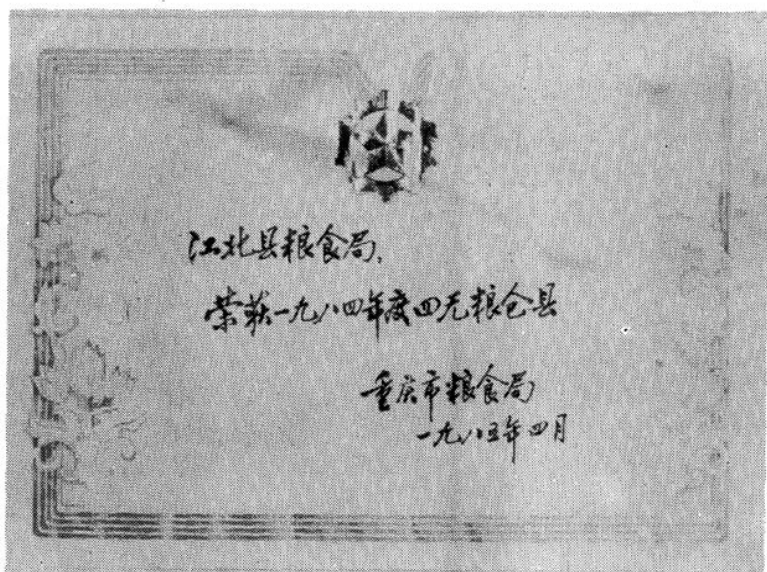 江北县粮食局,
荣获一九八四年度四无粮仓县
重庆市粮食局
一九八五年四月